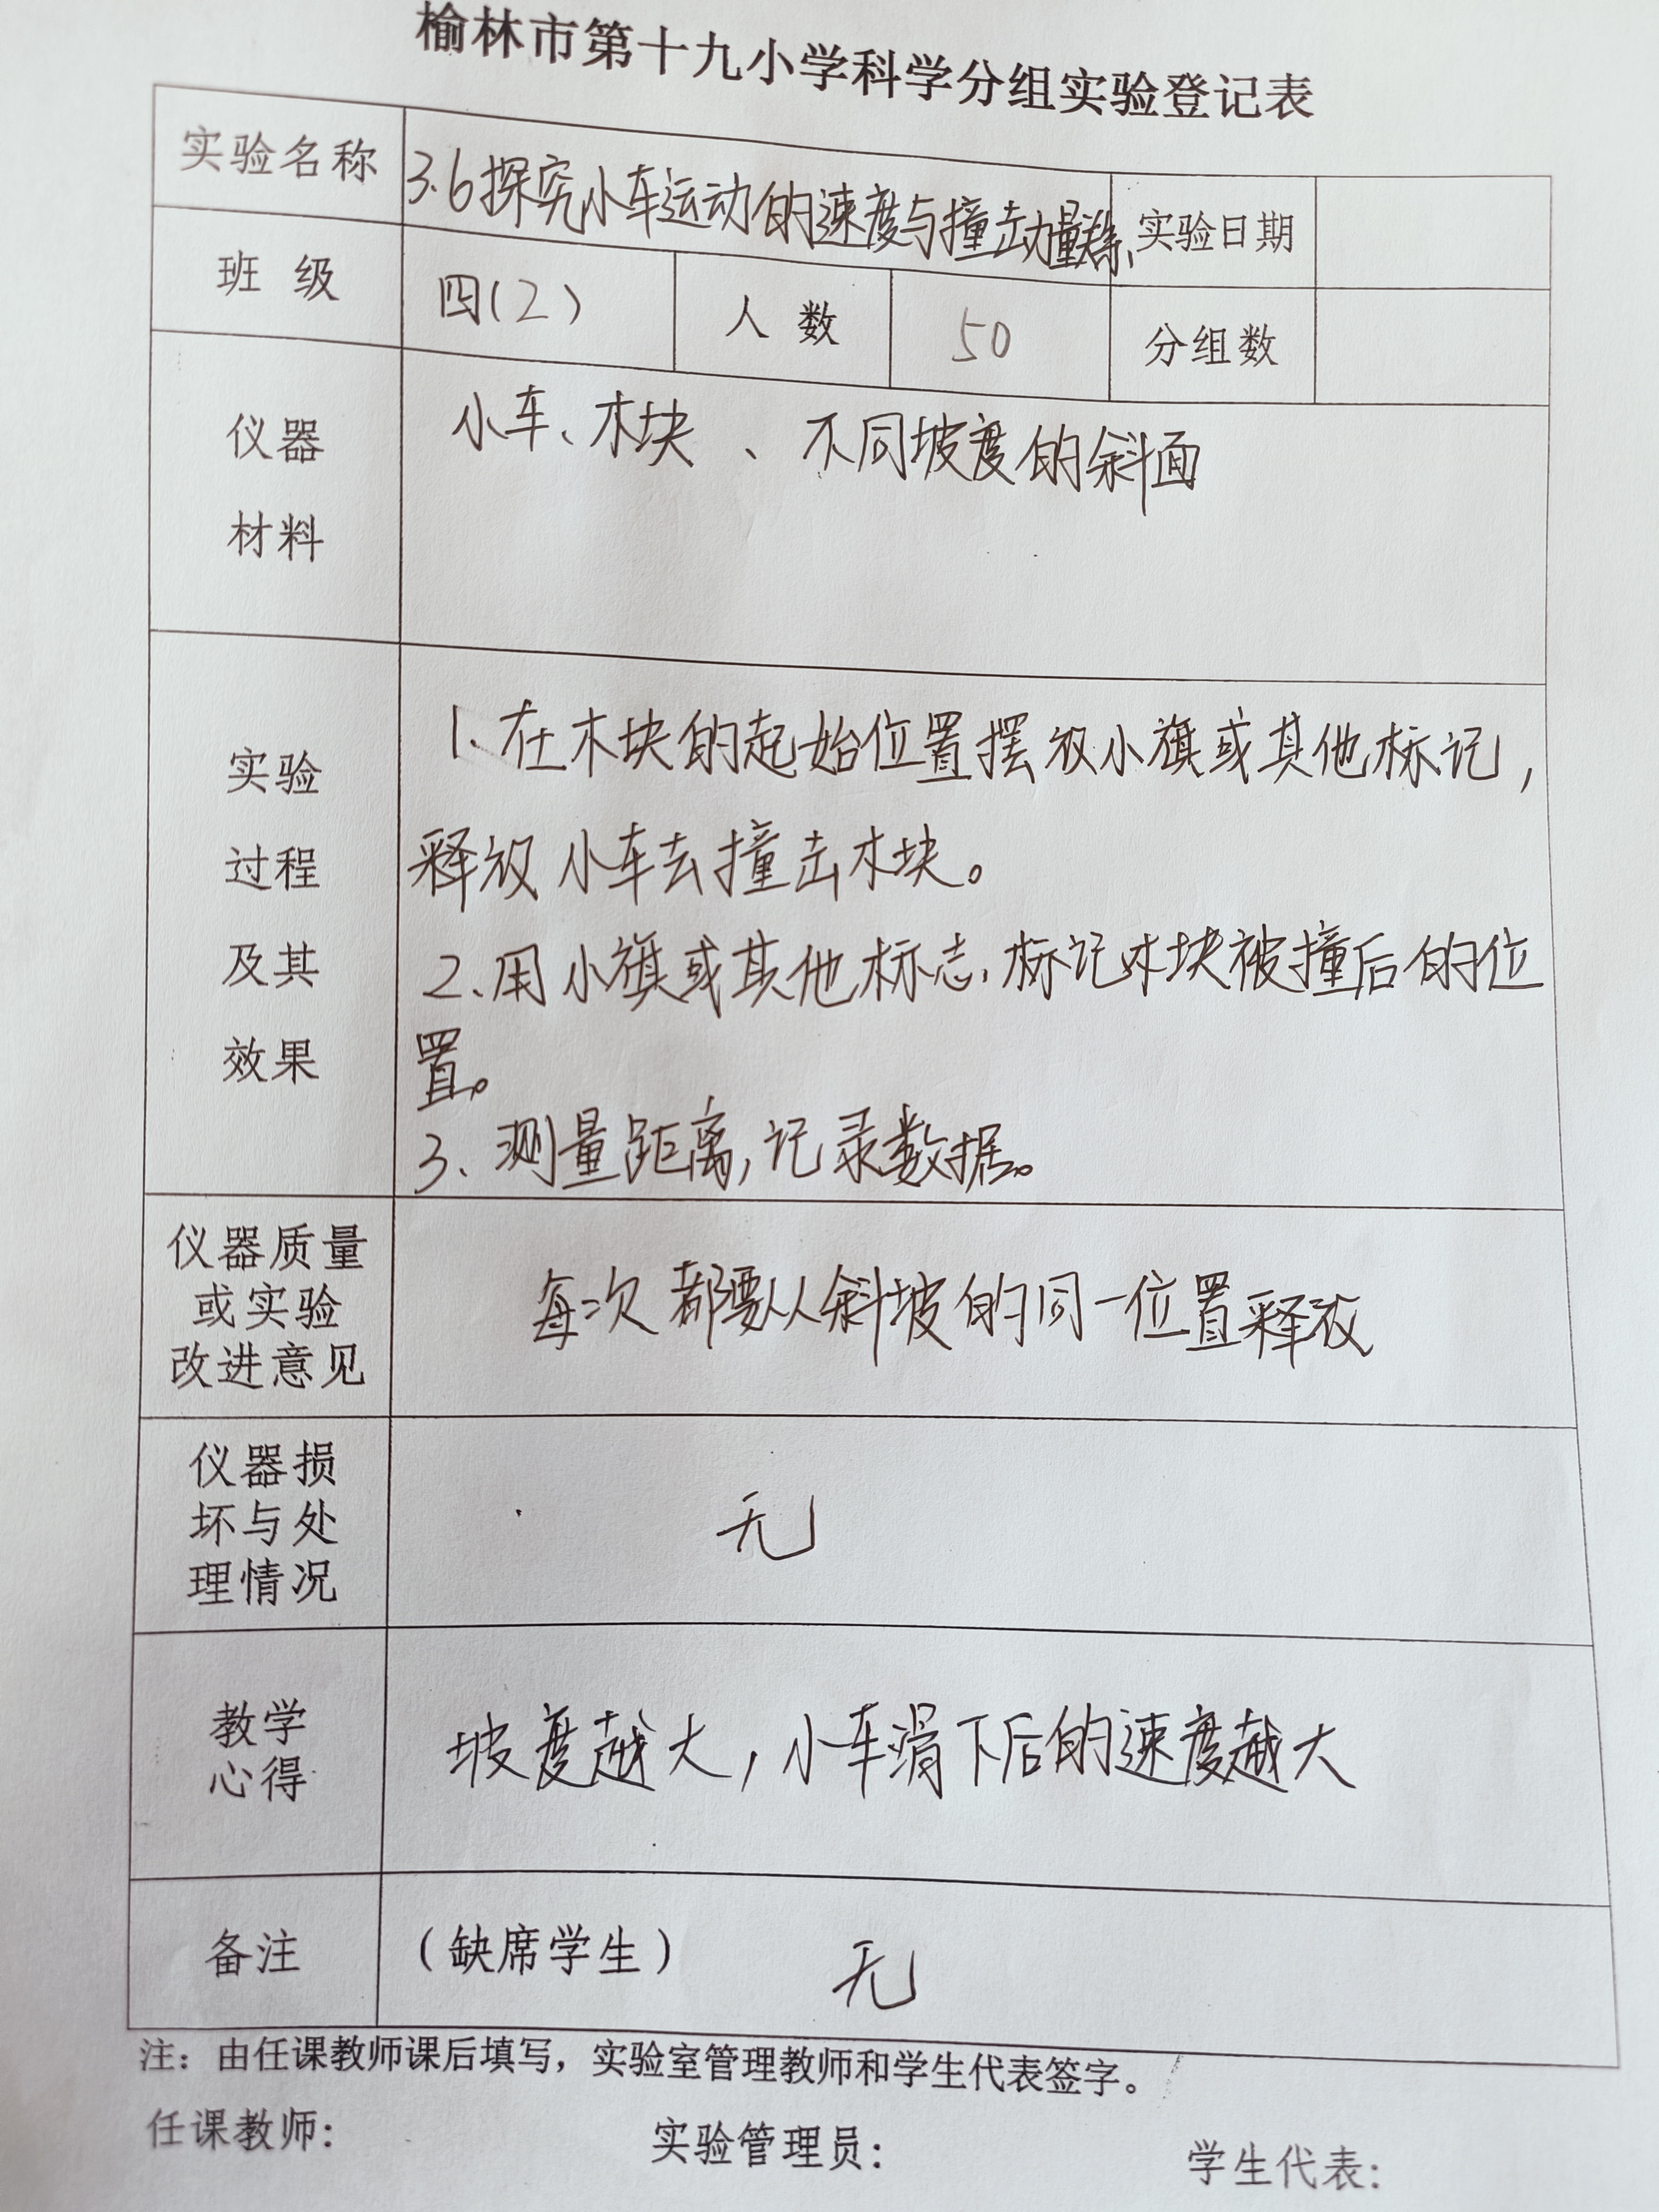 榆林市第十九小学科学分组实验登记表
实验名称 3.6探究小车运动的速度与撞击力量关系 实验日期
班 级 四(2) 人 数 50 分组数
仪器
材料
小车、木块、不同坡度的斜面
实验
过程
及其
效果
1、在木块的起始位置摆放小旗或其他标记,
释放小车去撞击木块。
2、用小旗或其他标志,标记木块被撞后的位
置。
3、测量距离,记录数据。
仪器质量
或实验
改进意见
每次都要从斜坡的同一位置释放
仪器损
坏与处
理情况
无
教学
心得
坡度越大,小车滑下后的速度越大
备注 (缺席学生) 无
注:由任课教师课后填写,实验室管理教师和学生代表签字。
任课教师: 实验管理员: 学生代表: